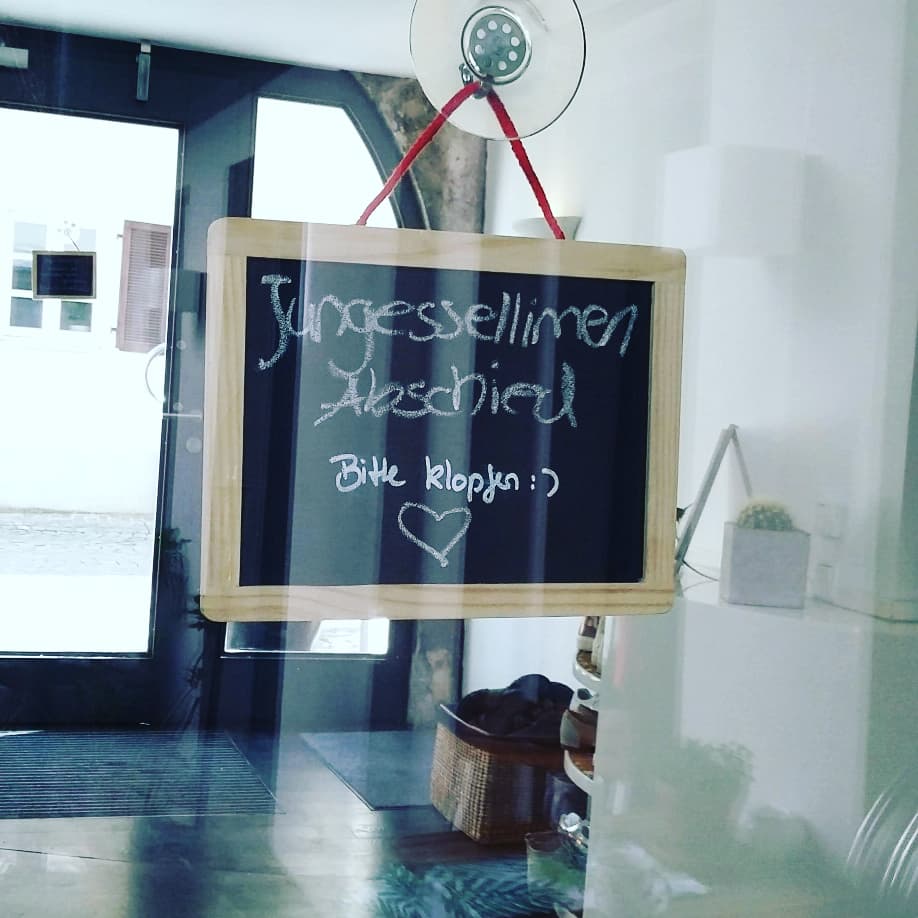 Jungessellinnen
Abschied
Bitte klopfen :)